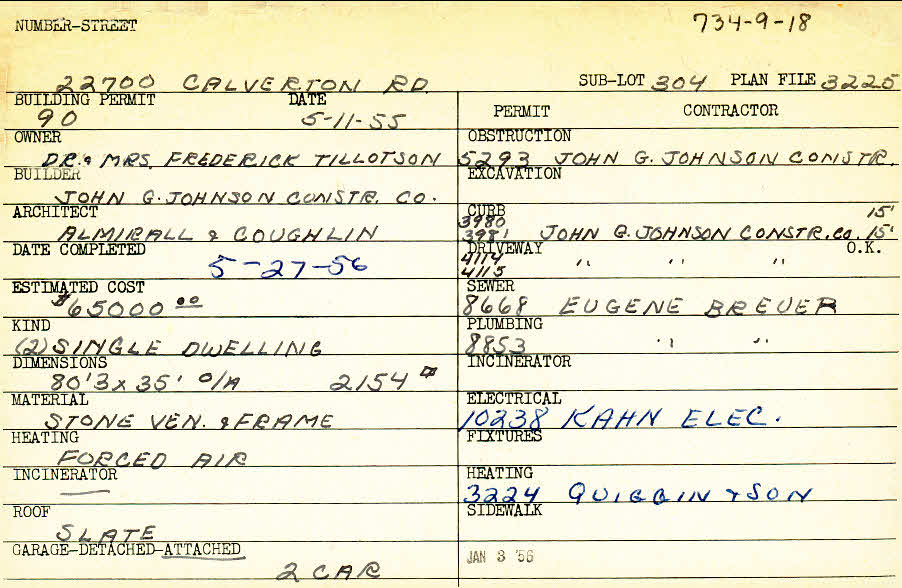 NUMBER-STREET
734-9-18
22700 CALVERTON RD.
SUB-LOT 304 PLAN FILE 3225
BUILDING PERMIT DATE
90 5-11-55
PERMIT CONTRACTOR
OWNER
DR. & MRS. FREDERICK TILLOTSON
BUILDER
JOHN G. JOHNSON CONSTR. CO.
ARCHITECT
ALMIRALL & COUGHLIN
DATE COMPLETED
5-27-56
ESTIMATED COST
$65000 00
KIND
(2) SINGLE DWELLING
DIMENSIONS
80'3 x 35' O/A 2154 □
MATERIAL
STONE VEN. & FRAME
HEATING
FORCED AIR
INCINERATOR
—
ROOF
SLATE
GARAGE-DETACHED-ATTACHED
2 CAR
OBSTRUCTION
5293 JOHN G. JOHNSON CONSTR.
EXCAVATION
CURB 15'
3980
3981 JOHN G. JOHNSON CONSTR. CO. 15'
DRIVEWAY O.K.
4114 " " "
4115
SEWER
8668 EUGENE BREUER
PLUMBING
8853 " "
INCINERATOR
ELECTRICAL
10238 KAHN ELEC.
FIXTURES
HEATING
3224 QUIGGIN & SON
SIDEWALK
JAN 3 '56